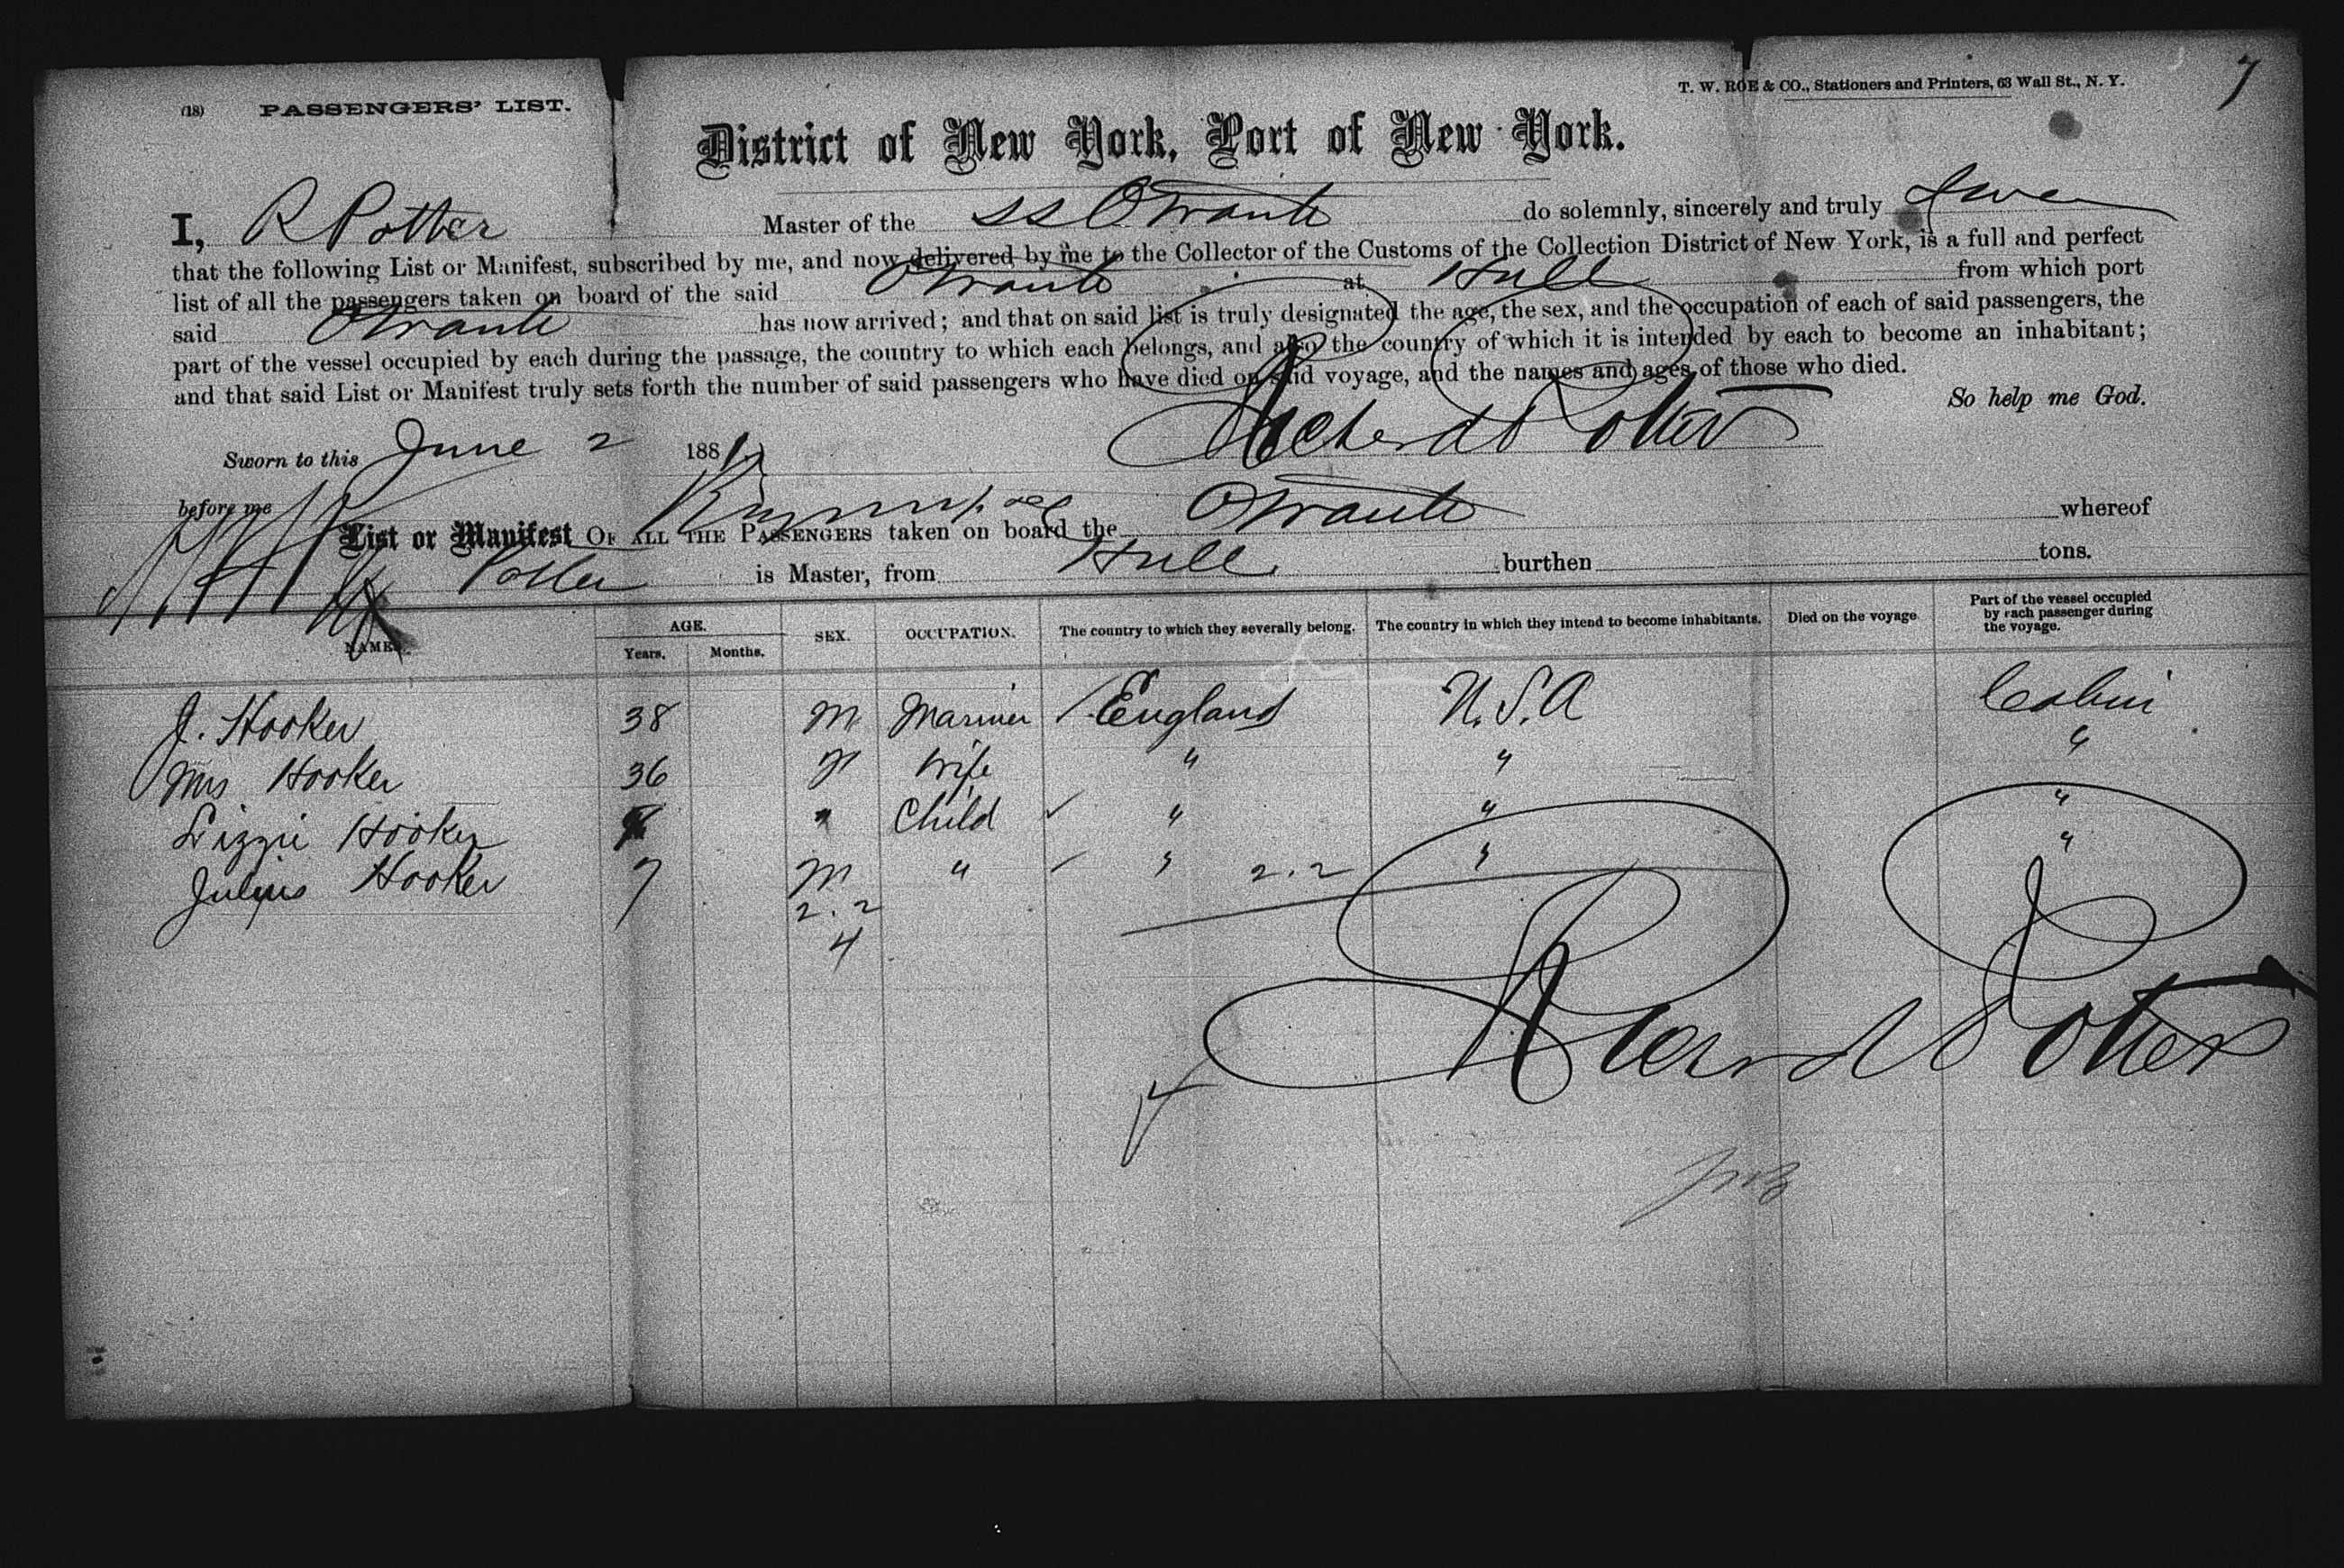 7
T. W. ROE & CO., Stationers and Printers, 63 Wall St., N. Y.
(18) PASSENGERS' LIST.
District of New York, Port of New York.
I, R Potter Master of the SS Otranto do solemnly, sincerely and truly swear
that the following List or Manifest, subscribed by me, and now delivered by me to the Collector of the Customs of the Collection District of New York, is a full and perfect
list of all the passengers taken on board of the said Otranto at Hull from which port
said Otranto has now arrived; and that on said list is truly designated the age, the sex, and the occupation of each of said passengers, the
part of the vessel occupied by each during the passage, the country to which each belongs, and also the country of which it is intended by each to become an inhabitant;
and that said List or Manifest truly sets forth the number of said passengers who have died on said voyage, and the names and ages of those who died.
So help me God.
Sworn to this June 2 1881 Richard Potter
before me
List or Manifest OF ALL THE PASSENGERS taken on board the Otranto whereof
Potter is Master, from Hull burthen tons.
NAMES. AGE. Years. Months. SEX. OCCUPATION. The country to which they severally belong. The country in which they intend to become inhabitants. Died on the voyage Part of the vessel occupied by each passenger during the voyage.
J. Hooker 38 M Mariner England U.S.A Cabin
Mrs Hooker 36 F Wife " " "
Lizzie Hooker " Child " " "
Julius Hooker 7 M " " 2.2 " "
2.2
4
Richard Potter